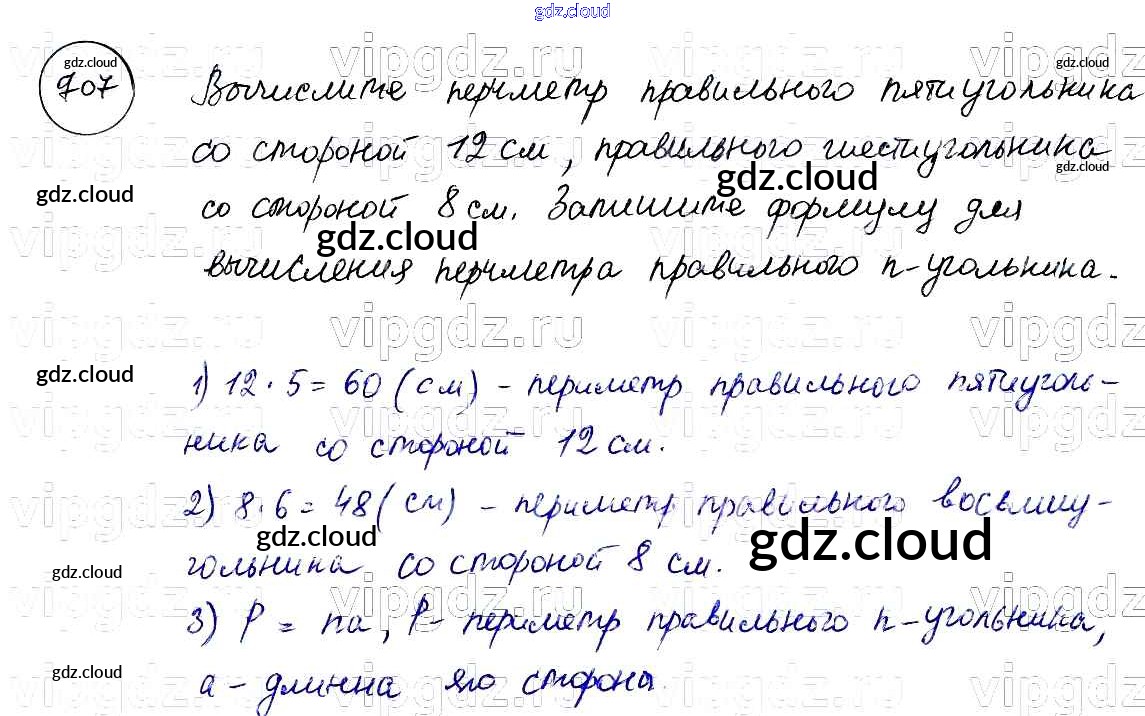 gdz.cloud
707
Вычислите периметр правильного пятиугольника
со стороной 12 см, правильного шестиугольника
со стороной 8 см. Запишите формулу для
вычисления периметра правильного n-угольника.
1) 12 · 5 = 60 (см) - периметр правильного пятиуголь-
ника со стороной 12 см.
2) 8 · 6 = 48 (см) - периметр правильного восьмиу-
гольника со стороной 8 см.
3) P = na, P - периметр правильного n-угольника,
a - длинна его стороны.
gdz.cloud
gdz.cloud
gdz.cloud
gdz.cloud
gdz.cloud
gdz.cloud
gdz.cloud
gdz.cloud
gdz.cloud
gdz.cloud
gdz.cloud
gdz.cloud
vipgdz.ru
vipgdz.ru
vipgdz.ru
vipgdz.ru